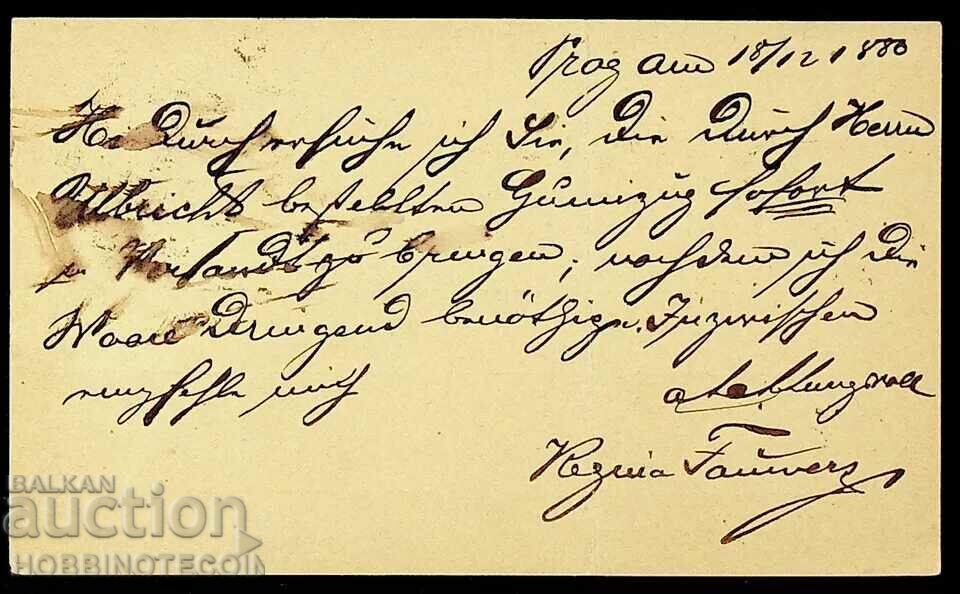 Prag am 18/12 1880
Hiedurch ersuche ich Sie, die durch Herrn
Ulbricht bestellten Gumizug sofort
zu bringen, nachdem ich die
Waare dringend benöthige. Inzwischen
empfehle mich
achtungsvoll
Regina
BALKAN
auction
HOBBINOTECOIN